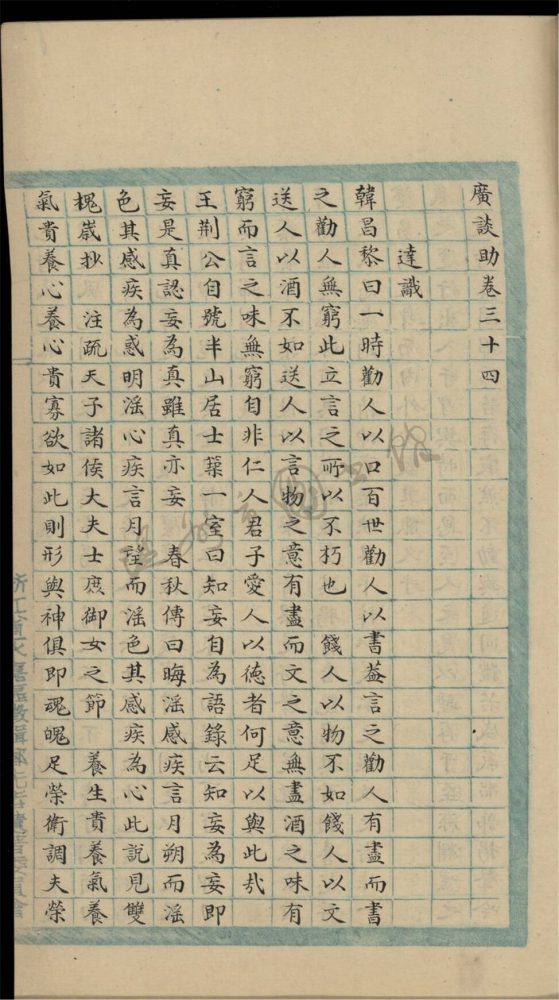 廣談助卷三十四
達識
韓昌黎曰一時勸人以口百世勸人以書葢言之勸人有盡而書
之勸人無窮此立言之所以不朽也 餞人以物不如餞人以文
送人以酒不如送人以言物之意有盡而文之意無盡酒之味有
窮而言之味無窮自非仁人君子愛人以德者何足以與此㦲
王荆公自號半山居士築一室曰知妄自為語錄云知妄為妄即
妄是真認妄為真雖真亦妄 春秋傳曰晦滛感疾言月朔而滛
色其感疾為感明滛心疾言月望而滛色其感疾為心此說見雙
槐嵗抄 注疏天子諸侯大夫士庶御女之節 養生貴養氣養
氣貴養心養心貴寡欲如此則形與神俱即魂魄足榮衛調夫榮